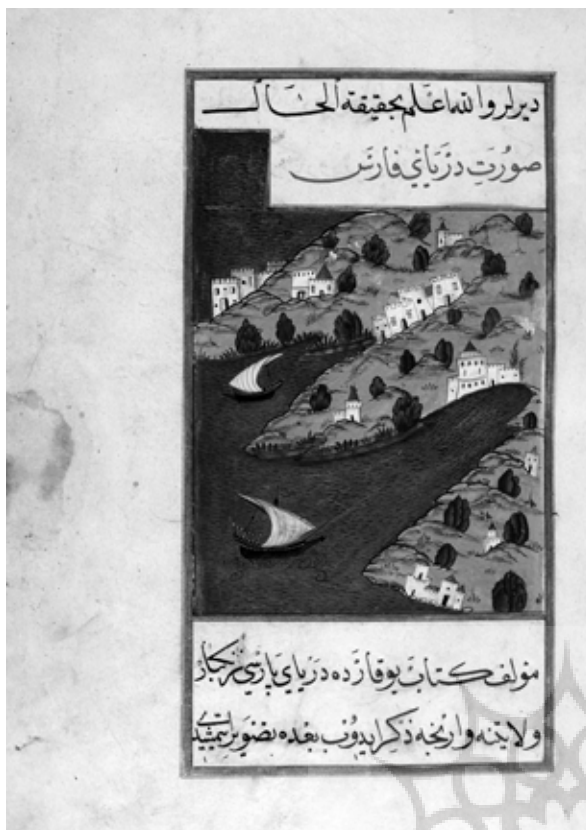 ديرلر والله اعلم بحقيقة الحال
صورت درياي فارس
مؤلف كتاب يوقارده درياي پارسي زنجبار
ولايتنه وارنجه ذكر ايدوب بعده تصوير